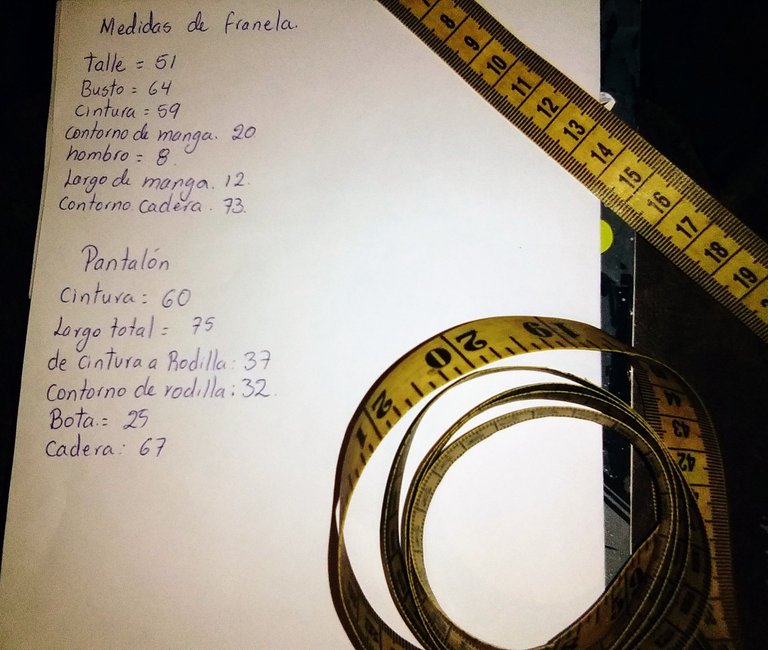 Medidas de franela.
talle = 51
Busto = 64
Cintura = 59
contorno de manga. 20
hombro = 8.
Largo de manga. 12.
Contorno cadera. 73.
Pantalón
Cintura: 60
Largo total = 75
de cintura a Rodilla: 37
Contorno de rodilla: 32.
Bota.= 25
Cadera: 67
8 9 10 11 12 13 14 15 16 17 18 19
19
20
21
44
43
42